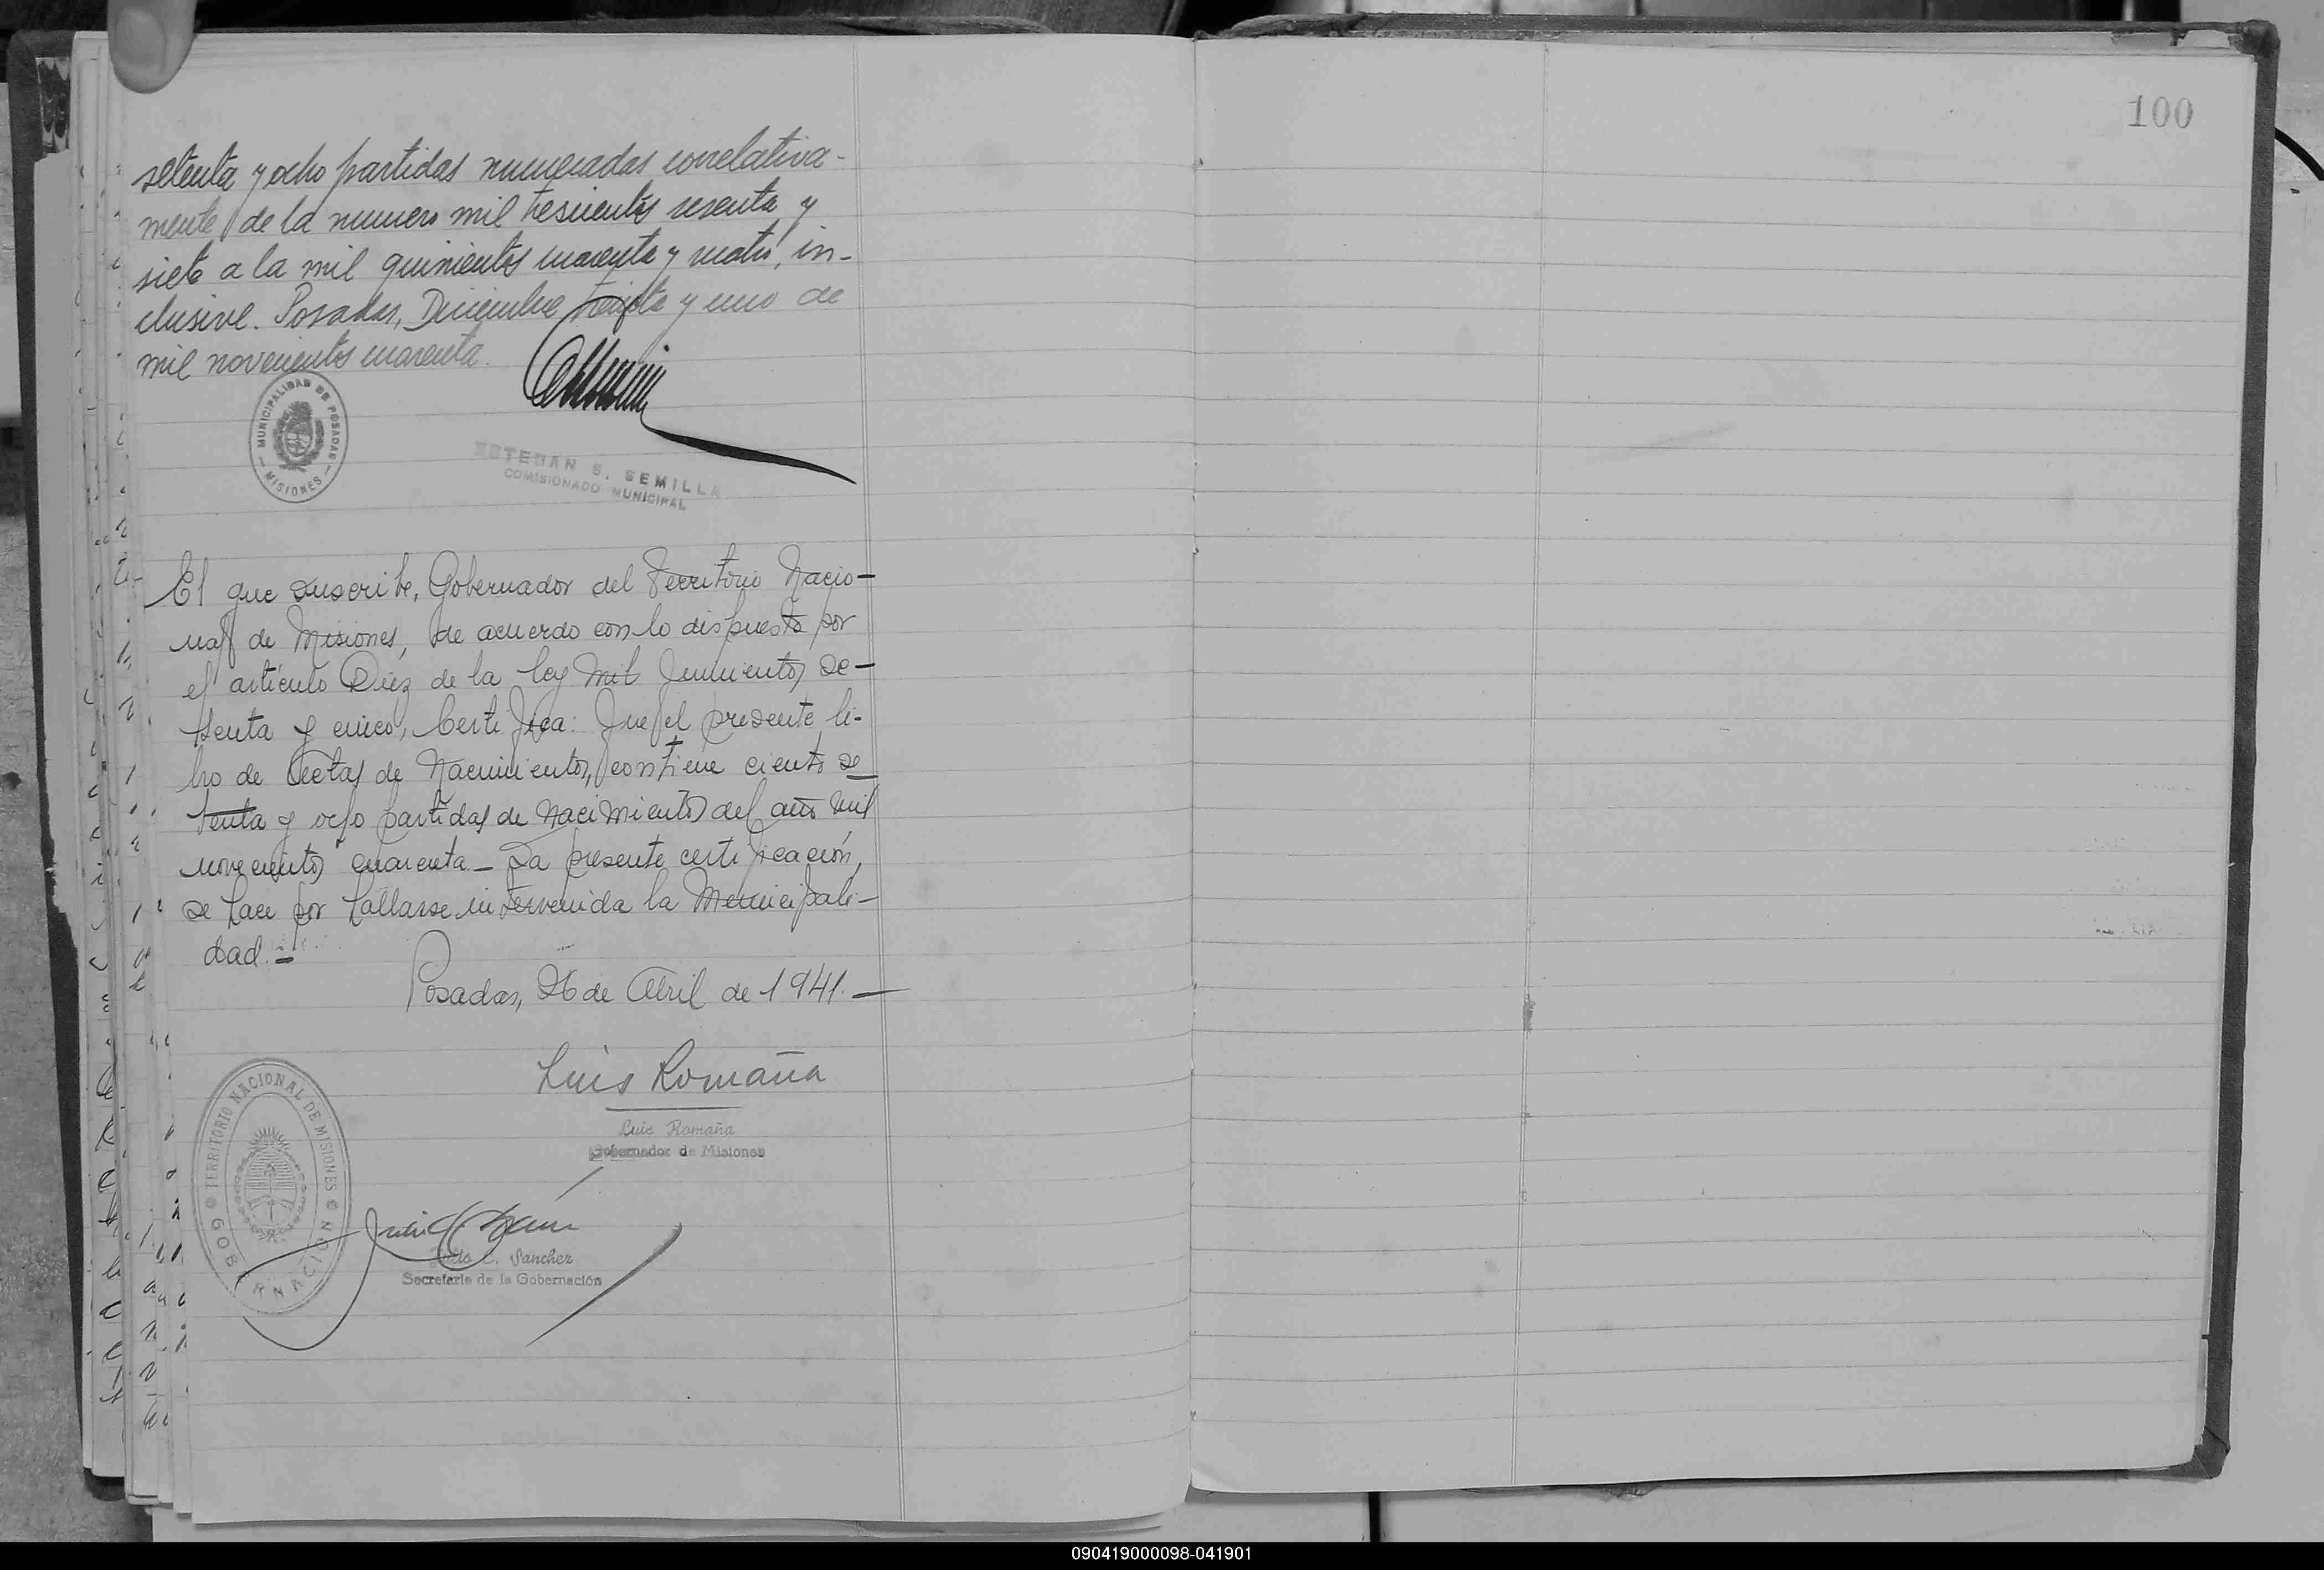 setenta y ocho partidas numeradas correlativa-
mente de la numero mil trescientos sesenta y
siete a la mil quinientos cuarenta y cuatro, in-
clusive. Posadas, Diciembre treinta y uno de
mil novecientos cuarenta.
MUNICIPALIDAD DE POSADAS
— MISIONES —
ESTEBAN S. SEMILLA
COMISIONADO MUNICIPAL
El que suscribe, Gobernador del Territorio Nacio-
nal de Misiones, de acuerdo con lo dispuesto por
el artículo Diez de la ley Mil quinientos se-
senta y cinco, Certifica: Que el presente li-
bro de Actas de Nacimientos, contiene ciento se-
tenta y ocho partidas de Nacimientos del año mil
novecientos cuarenta. — La presente certificación,
se hace por hallarse intervenida la Municipali-
dad. =
Posadas, 26 de Abril de 1941. —
Luis Romaña
Luis Romaña
Gobernador de Misiones
TERRITORIO NACIONAL DE MISIONES
GOBERNACION
C. Sanchez
Secretario de la Gobernación
100
090419000098-041901